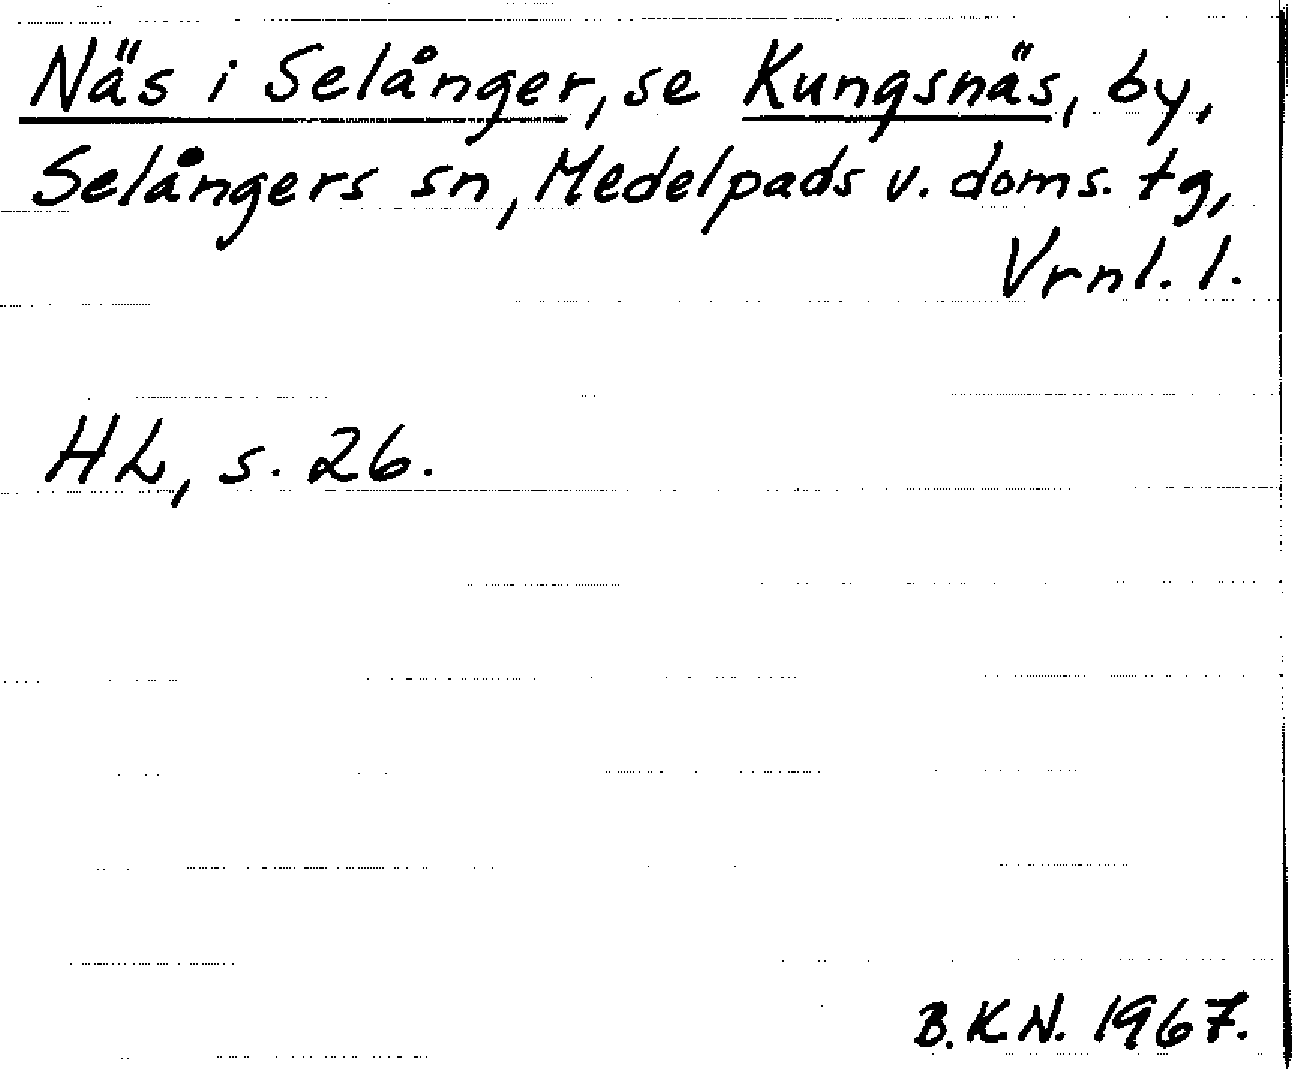 Näs i Selånger, se Kungsnäs, by,
Selångers sn, Medelpads v. doms. tg,
Vrnl. l.
HL, s. 26.
B.K.N. 1967.